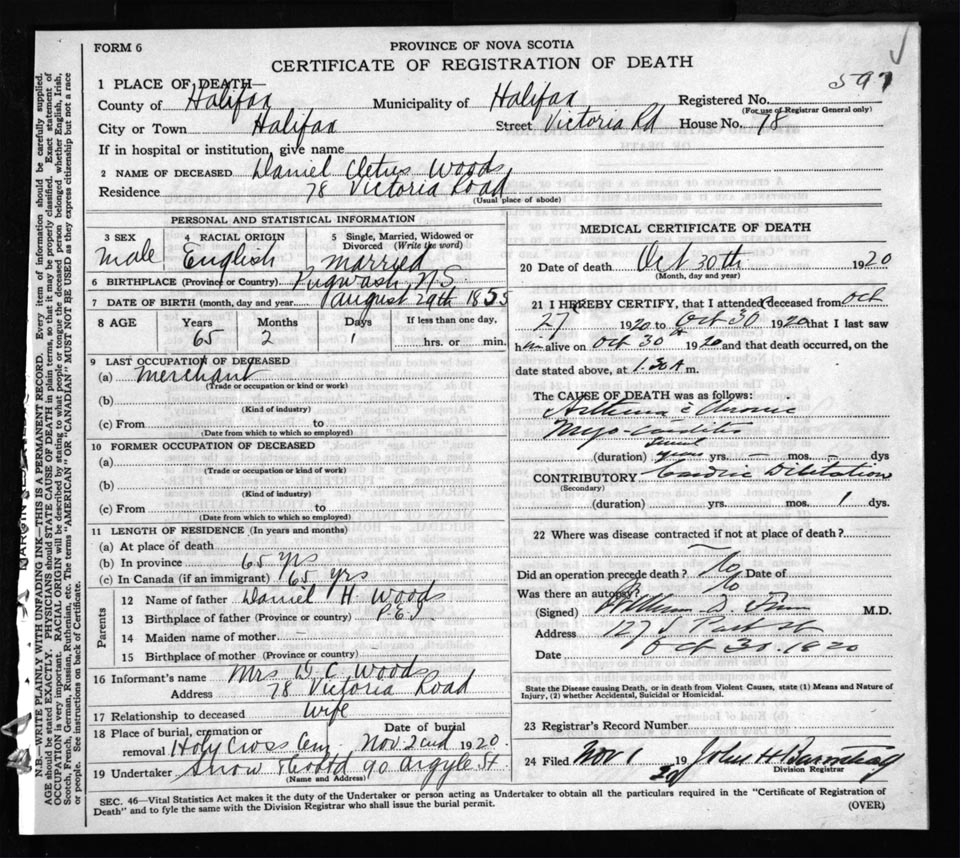 FORM 6
PROVINCE OF NOVA SCOTIA
CERTIFICATE OF REGISTRATION OF DEATH
597
1 PLACE OF DEATH—
County of Halifax Municipality of Halifax Registered No.
(For use of Registrar General only)
City or Town Halifax Street Victoria Rd House No. 78
If in hospital or institution, give name
2 NAME OF DECEASED Daniel Cletus Woods
Residence 78 Victoria Road
(Usual place of abode)
PERSONAL AND STATISTICAL INFORMATION
3 SEX Male
4 RACIAL ORIGIN English
5 Single, Married, Widowed or Divorced (Write the word) Married
6 BIRTHPLACE (Province or Country) Pugwash, N.S.
7 DATE OF BIRTH (month, day and year) August 29th 1855
8 AGE Years 65 Months 2 Days 1 If less than one day, hrs. or min.
9 LAST OCCUPATION OF DECEASED
(a) Merchant
(Trade or occupation or kind or work)
(b)
(Kind of industry)
(c) From to
(Date from which to which so employed)
10 FORMER OCCUPATION OF DECEASED
(a)
(Trade or occupation or kind of work)
(b)
(Kind of industry)
(c) From to
(Date from which to which so employed)
11 LENGTH OF RESIDENCE (In years and months)
(a) At place of death
(b) In province 65 yrs
(c) In Canada (if an immigrant) 65 yrs
Parents
12 Name of father Daniel H. Woods
13 Birthplace of father (Province or country) P.E.I.
14 Maiden name of mother
15 Birthplace of mother (Province or country)
16 Informant's name Mrs D. C. Woods
Address 78 Victoria Road
17 Relationship to deceased Wife
18 Place of burial, cremation or removal Holy Cross Cem. Date of burial Nov 2nd 1920.
19 Undertaker Snow 90 Argyle St.
(Name and Address)
MEDICAL CERTIFICATE OF DEATH
20 Date of death Oct 30th 1920
(Month, day and year)
21 I HEREBY CERTIFY, that I attended deceased from Oct
27 1920 to Oct 30 1920 that I last saw
him alive on Oct 30 1920 and that death occurred, on the
date stated above, at 1.30 A m.
The CAUSE OF DEATH was as follows:
Asthma c̄ Chronic
Myo-carditis
(duration) several years yrs. — mos. — dys
CONTRIBUTORY Cardiac Dilitation
(Secondary)
(duration) yrs. mos. 1 dys.
22 Where was disease contracted if not at place of death?
Did an operation precede death? No Date of
Was there an autopsy? No
(Signed) William D. M.D.
Address
Date Oct 30. 1920
State the Disease causing Death, or in death from Violent Causes, state (1) Means and Nature of
Injury, (2) whether Accidental, Suicidal or Homicidal.
23 Registrar's Record Number
24 Filed Nov 1 19 20 John H
Division Registrar
SEC. 46—Vital Statistics Act makes it the duty of the Undertaker or person acting as Undertaker to obtain all the particulars required in the "Certificate of Registration of
Death" and to fyle the same with the Division Registrar who shall issue the burial permit.
(OVER)
N.B.—WRITE PLAINLY WITH UNFADING INK—THIS IS A PERMANENT RECORD. Every item of information should be carefully supplied.
AGE should be stated EXACTLY. PHYSICIANS should STATE CAUSE OF DEATH in plain terms, so that it may be properly classified. Exact statement of
OCCUPATION is very important. RACIAL ORIGIN will be described by stating to what people or tongue the deceased person belonged whether English, Irish,
Scotch, French, German, Russian, Ruthenian, etc. The terms "AMERICAN" or "CANADIAN" MUST NOT BE USED as they express citizenship but not a race
or people. See instructions on back of Certificate.